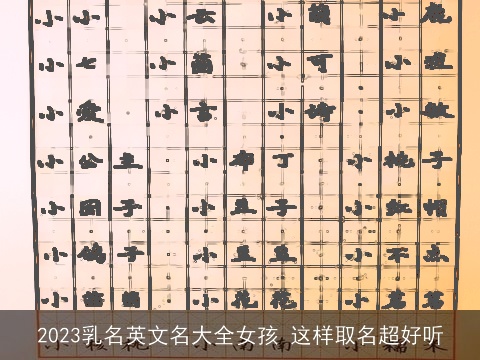 小小 小奴 小頔 小鹿
小七 小葡 小可 小理
小爱 小吉 小诗 小敏
小公主 小布丁 小桃子
小团子 小豆子 小红帽
小鸽子 小豆豆 小不点
小 小花花 小茗茗
2023乳名英文名大全女孩,这样取名超好听